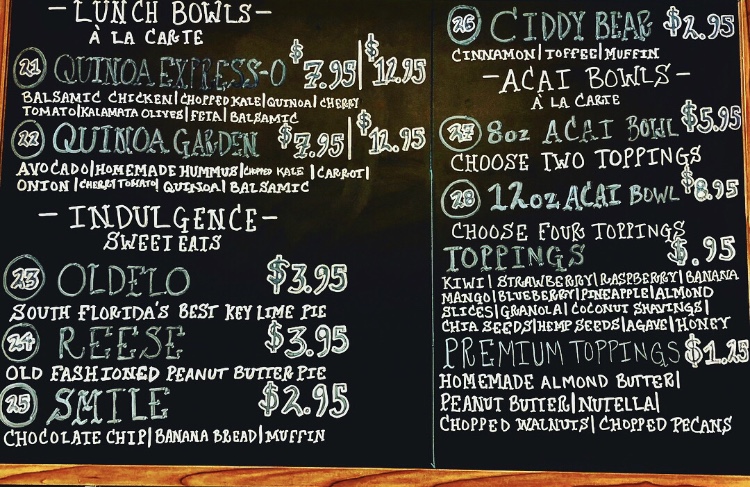 -LUNCH BOWLS-
À LA CARTE
21 QUINOA EXPRESS-O $7.95|$12.95
BALSAMIC CHICKEN|CHOPPED KALE|QUINOA|CHERRY
TOMATO|KALAMATA OLIVES|FETA|BALSAMIC
22 QUINOA GARDEN $7.95|$12.95
AVOCADO|HOMEMADE HUMMUS|CHOPPED KALE|CARROT|
ONION|CHERRY TOMATO|QUINOA|BALSAMIC
-INDULGENCE-
SWEET EATS
23 OLDELO $3.95
SOUTH FLORIDA'S BEST KEY LIME PIE
24 REESE $3.95
OLD FASHIONED PEANUT BUTTER PIE
25 SMILE $2.95
CHOCOLATE CHIP|BANANA BREAD|MUFFIN
26 CIDDY BEAR $2.95
CINNAMON|TOFFEE|MUFFIN
-ACAI BOWLS-
À LA CARTE
27 8oz ACAI BOWL $5.95
CHOOSE TWO TOPPINGS
28 12oz ACAI BOWL $8.95
CHOOSE FOUR TOPPINGS
TOPPINGS $.95
KIWI|STRAWBERRY|RASPBERRY|BANANA
MANGO|BLUEBERRY|PINEAPPLE|ALMOND
SLICES|GRANOLA|COCONUT SHAVINGS|
CHIA SEEDS|HEMP SEEDS|AGAVE|HONEY
PREMIUM TOPPINGS $1.25
HOMEMADE ALMOND BUTTER|
PEANUT BUTTER|NUTELLA|
CHOPPED WALNUTS|CHOPPED PECANS